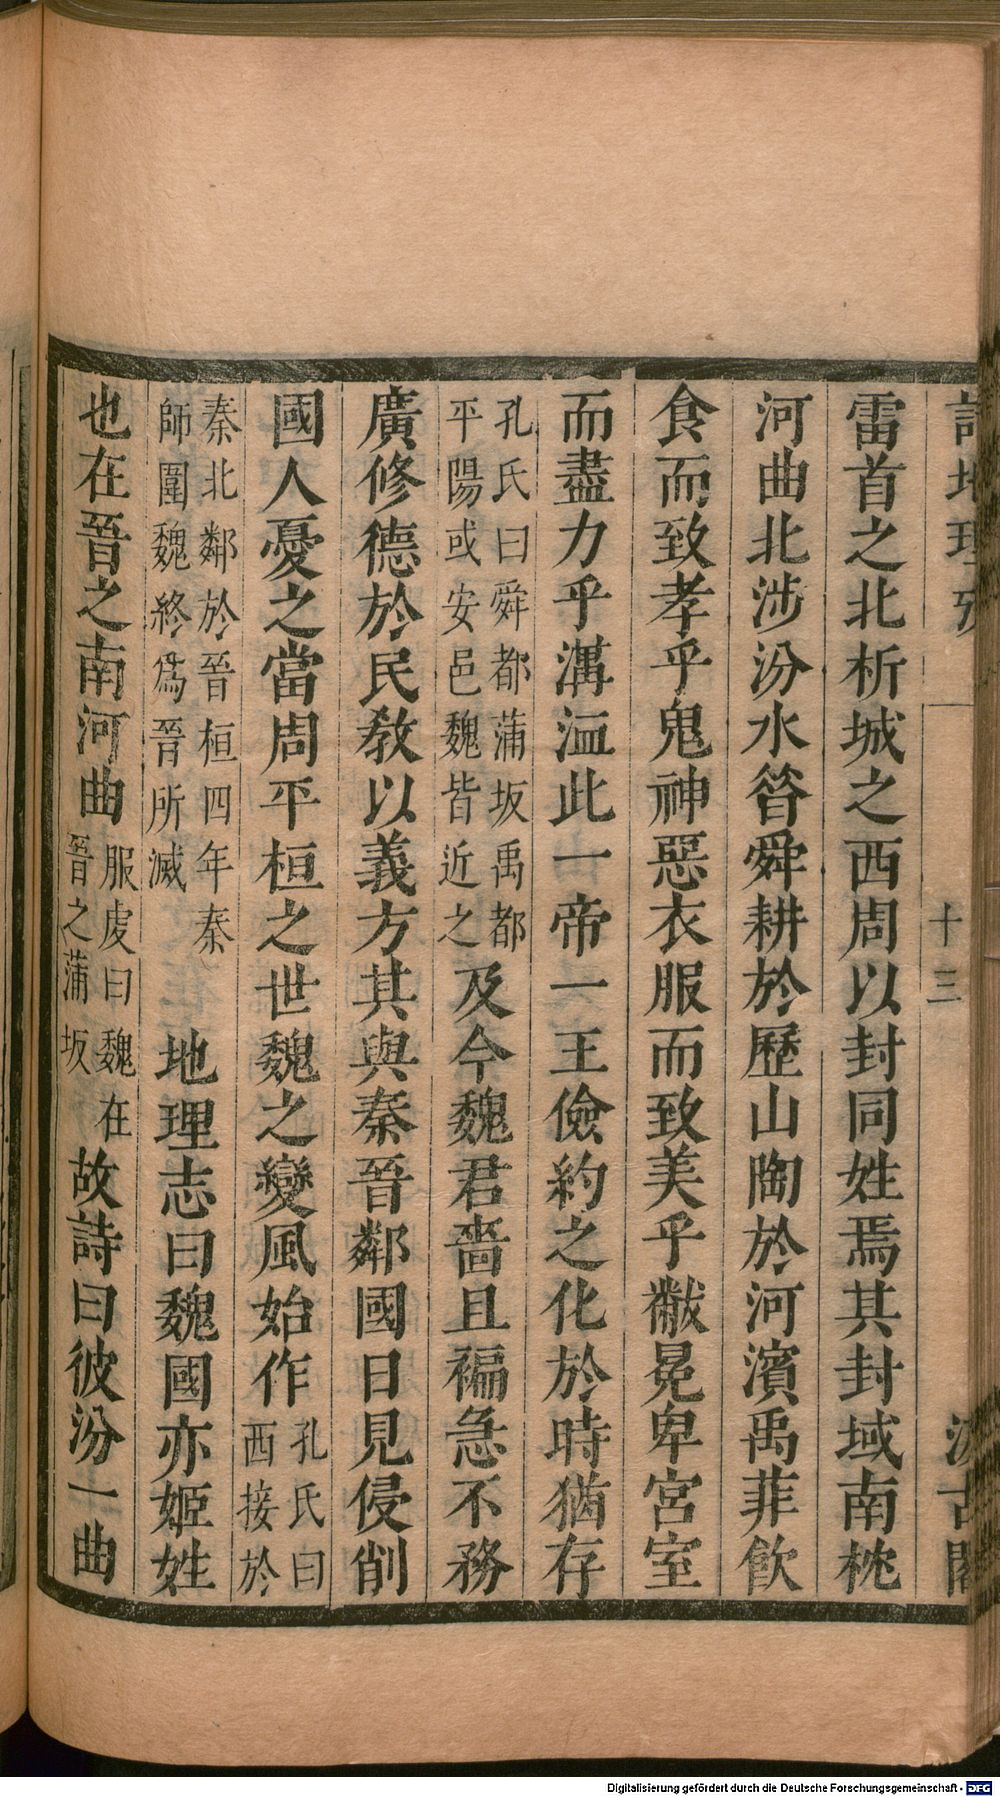 詩地理攷
十三
汲古閣
雷首之北析城之西周以封同姓焉其封域南枕
河曲北涉汾水昝舜耕於歷山陶於河濱禹菲飲
食而致孝乎鬼神惡衣服而致美乎黻冕卑宮室
而盡力乎溝洫此一帝一王儉約之化於時猶存
孔氏曰舜都蒲坂禹都
平陽或安邑魏皆近之
及今魏君嗇且褊急不務
廣修德於民敎以義方其與秦晉鄰國日見侵削
國人憂之當周平桓之世魏之變風始作
孔氏曰
西接於
秦北鄰於晉桓四年秦
師圍魏終爲晉所滅
地理志曰魏國亦姬姓
也在晉之南河曲
服虔曰魏在
晉之蒲坂
故詩曰彼汾一曲
Digitalisierung gefördert durch die Deutsche Forschungsgemeinschaft - DFG